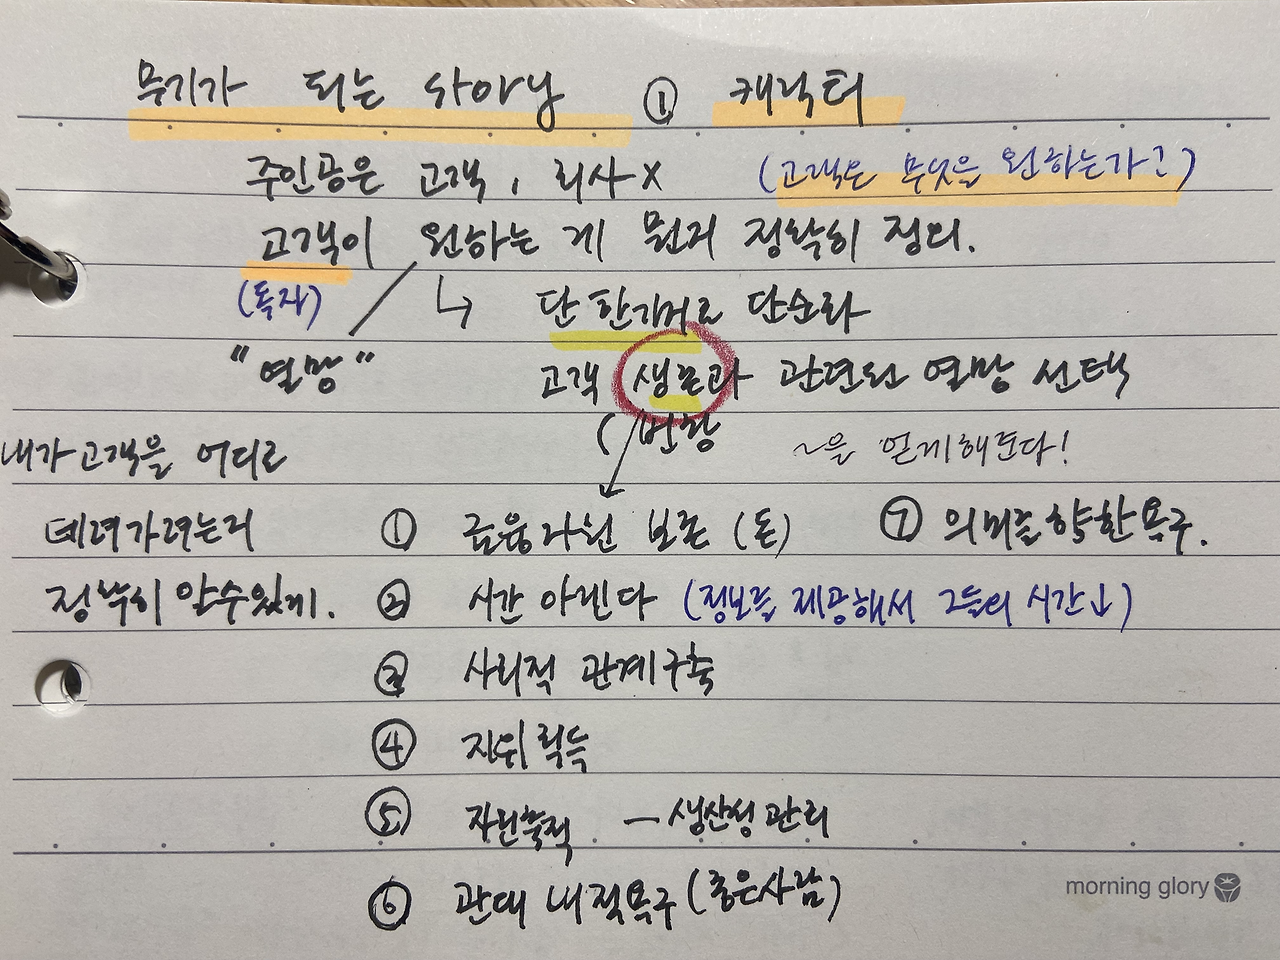 무기가 되는 스토리 ① 캐릭터
주인공은 고객, 회사 X (고객은 무엇을 원하는가?)
고객이 원하는 게 뭔지 정확히 정의.
(독자) ↳ 단 한가지로 단순화
"열망" 고객 생존과 관련된 열망 선택
(번창 ~을 얻게해준다!
내가 고객을 어디로
데려가려는지 ① 금융자원 보존 (돈) ⑦ 의미를 향한 욕구.
정확히 알수있게. ② 시간 아낀다 (정보를 제공해서 그들의 시간↓)
③ 사회적 관계구축
④ 지위획득
⑤ 자원축적 — 생산성 관리
⑥ 관대 내적욕구 (좋은사람)
morning glory